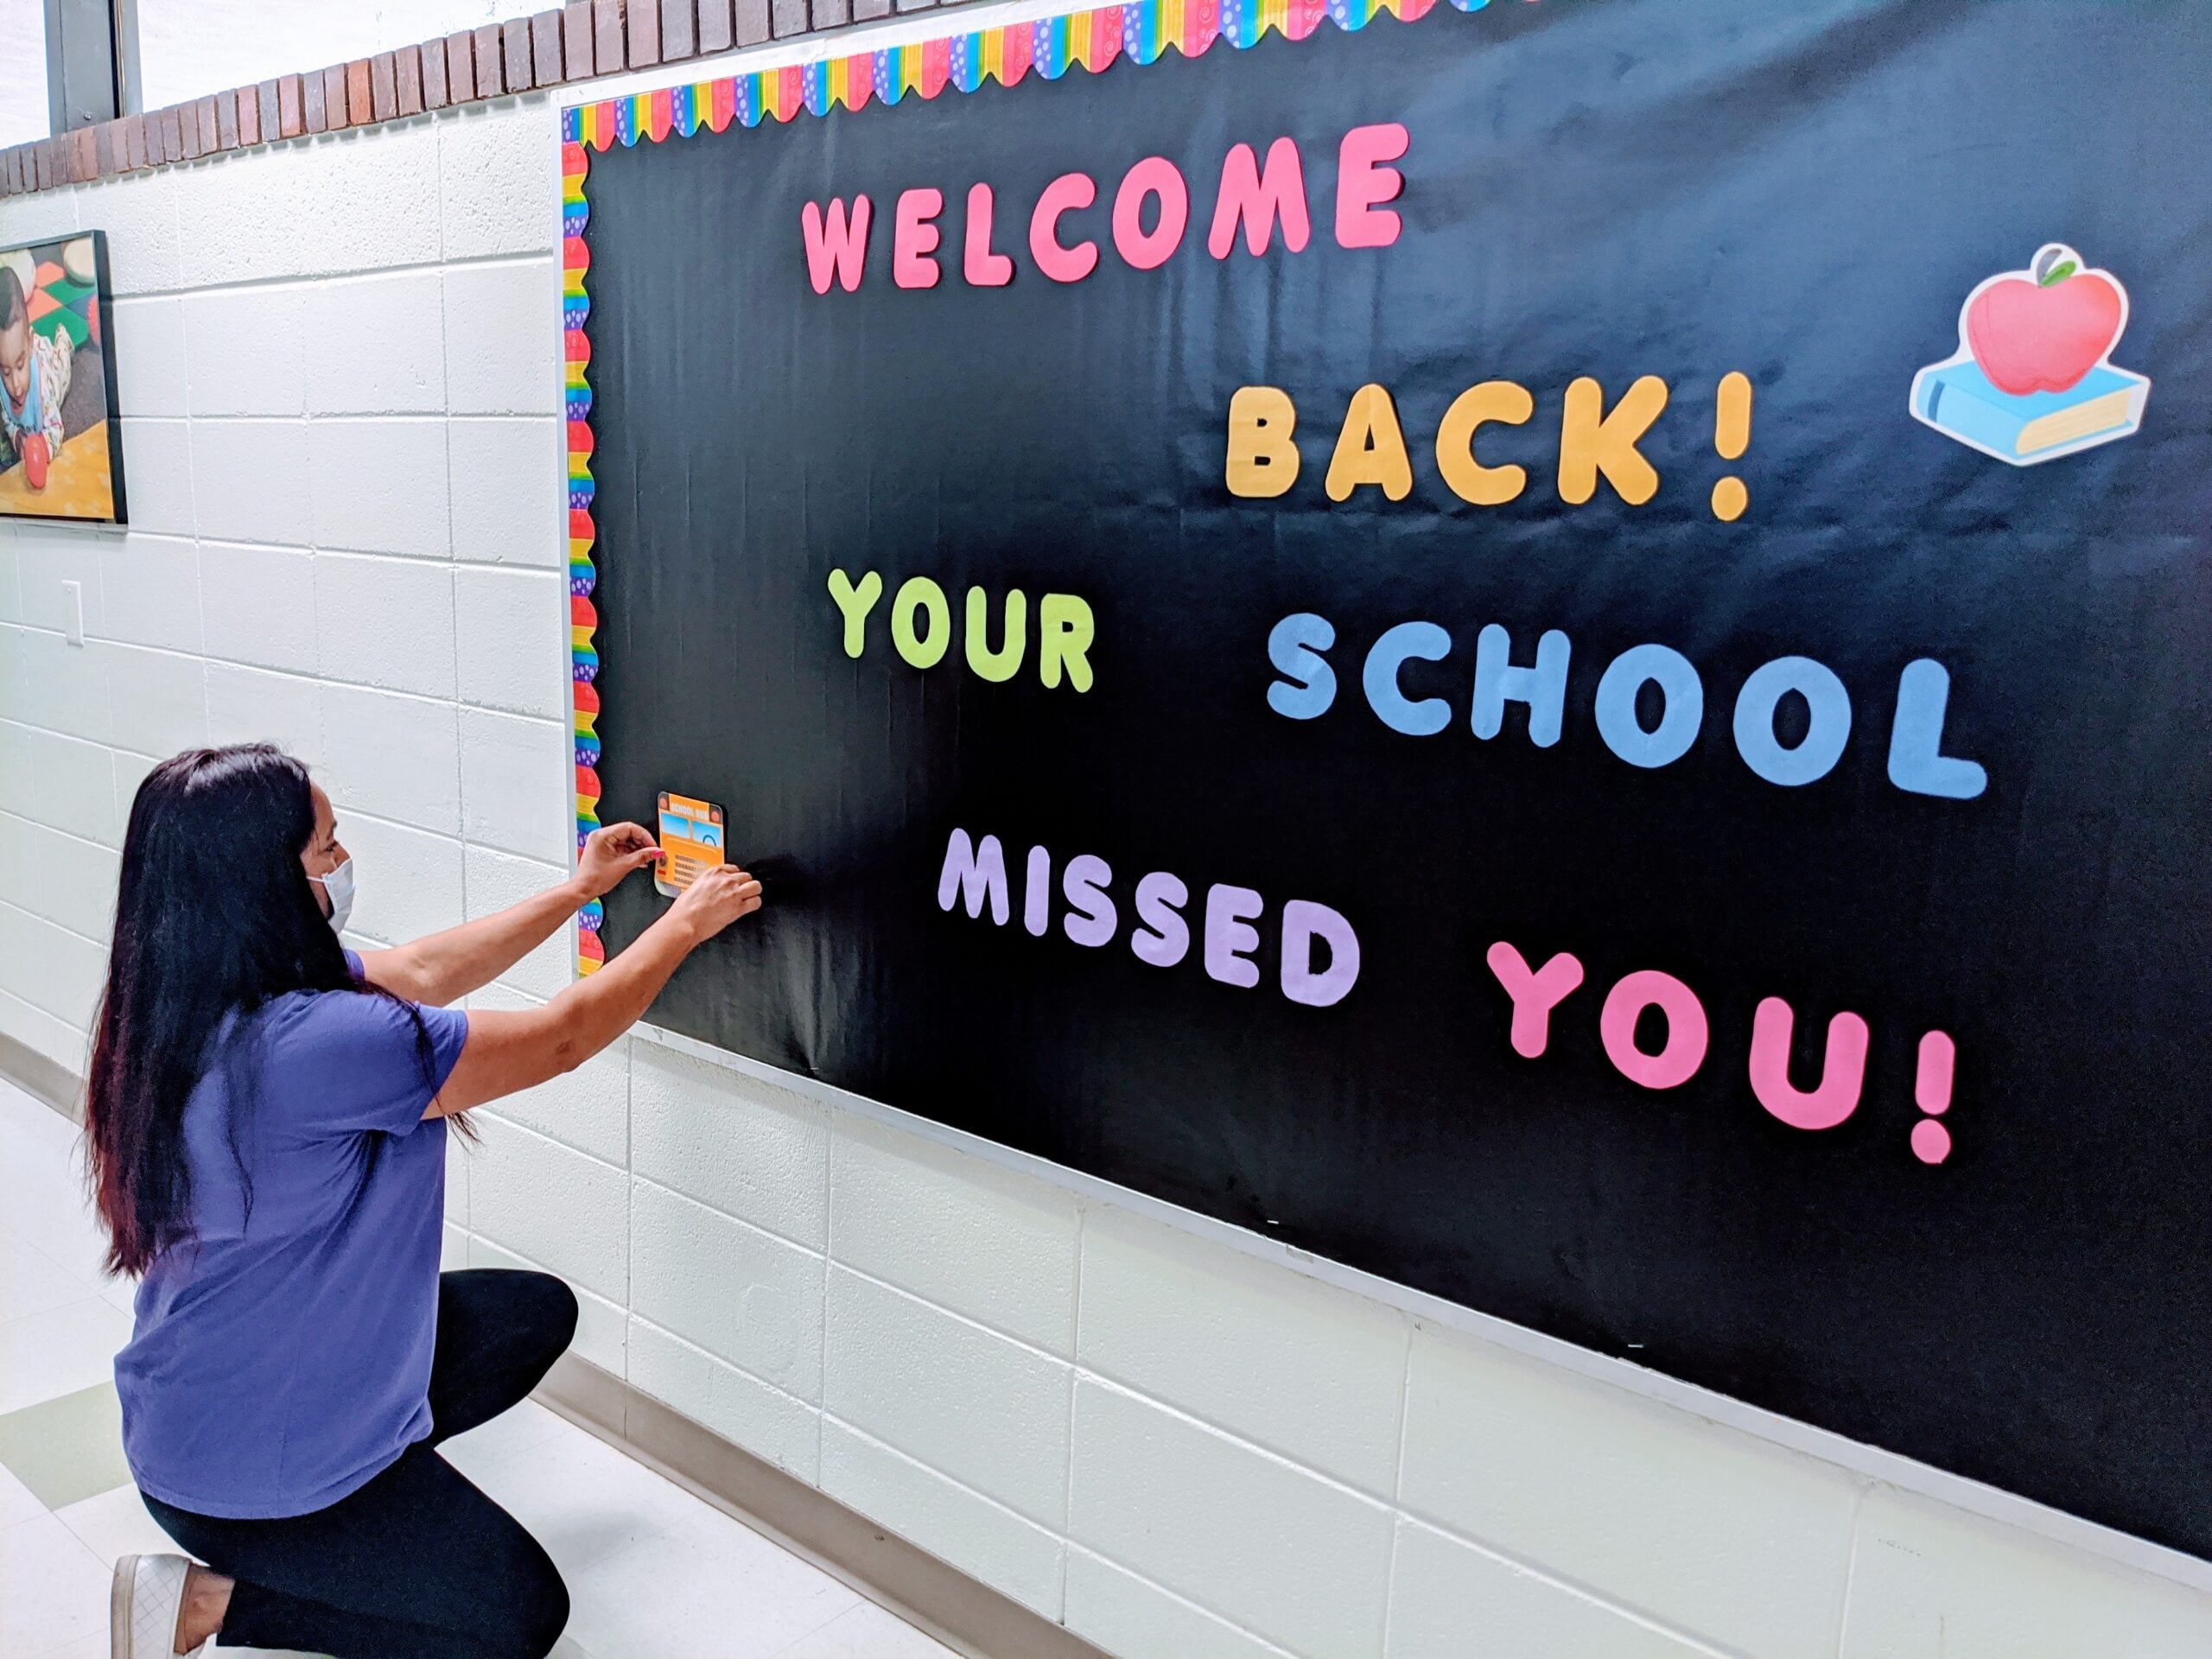 WELCOME
BACK!
YOUR SCHOOL
MISSED YOU!
SCHOOL BUS